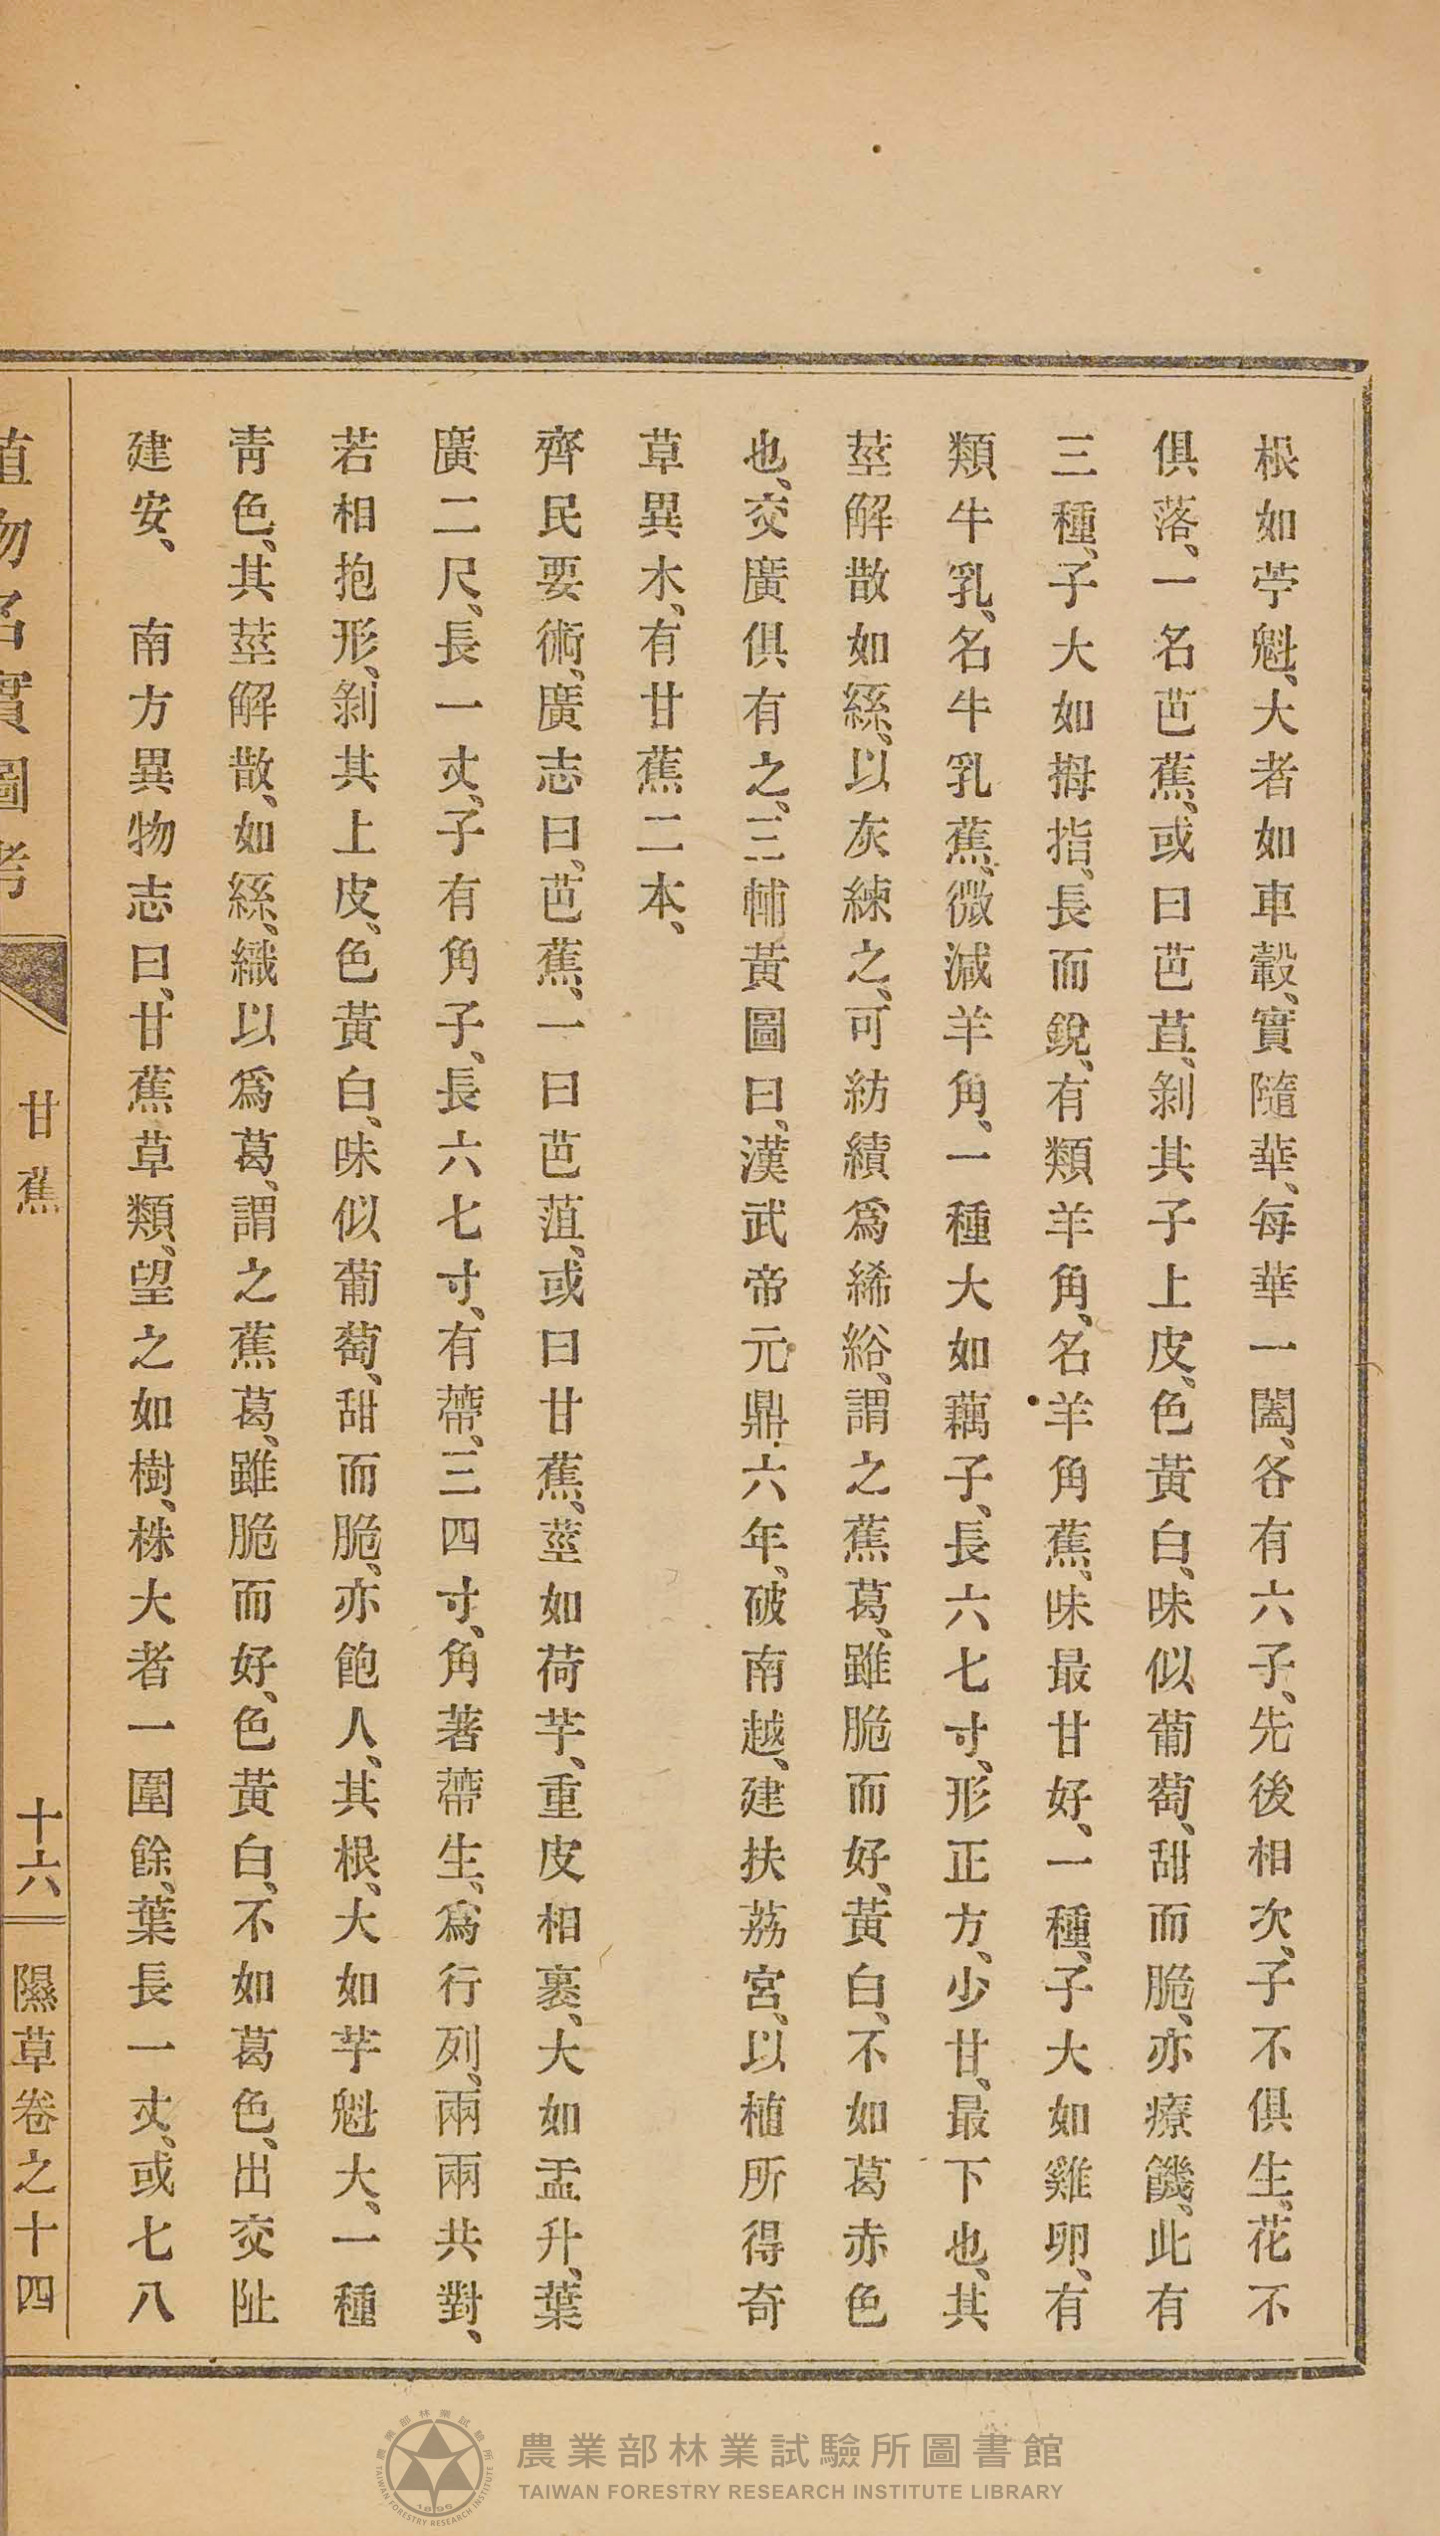 根如芋魁、大者如車轂、實隨華、每華一闔、各有六子、先後相次、子不俱生、花不
俱落、一名芭蕉、或曰芭苴、剝其子上皮、色黃白、味似葡萄、甜而脆、亦療饑、此有
三種、子大如拇指、長而銳、有類羊角、名羊角蕉、味最甘好、一種、子大如雞卵、有
類牛乳、名牛乳蕉、微減羊角、一種大如藕子、長六七寸、形正方、少甘、最下也、其
莖解散如絲、以灰練之、可紡績爲絺綌、謂之蕉葛、雖脆而好、黃白、不如葛赤色
也、交廣俱有之、三輔黃圖曰、漢武帝元鼎六年、破南越、建扶荔宮、以植所得奇
草異木、有甘蕉二本、
齊民要術、廣志曰、芭蕉、一曰芭菹、或曰甘蕉、莖如荷芋、重皮相裹、大如盂升、葉
廣二尺、長一丈、子有角子、長六七寸、有蔕、三四寸、角著蔕生、爲行列、兩兩共對、
若相抱形、剝其上皮、色黃白、味似葡萄、甜而脆、亦飽人、其根、大如芋魁大、一種
靑色、其莖解散、如絲、織以爲葛、謂之蕉葛、雖脆而好、色黃白、不如葛色、出交阯
建安、　南方異物志曰、甘蕉草類、望之如樹、株大者一圍餘、葉長一丈、或七八
植物名實圖考　甘蕉　十六　隰草卷之十四
農業部林業試驗所圖書館
TAIWAN FORESTRY RESEARCH INSTITUTE LIBRARY
農業部林業試驗所
TAIWAN FORESTRY RESEARCH INSTITUTE
1895